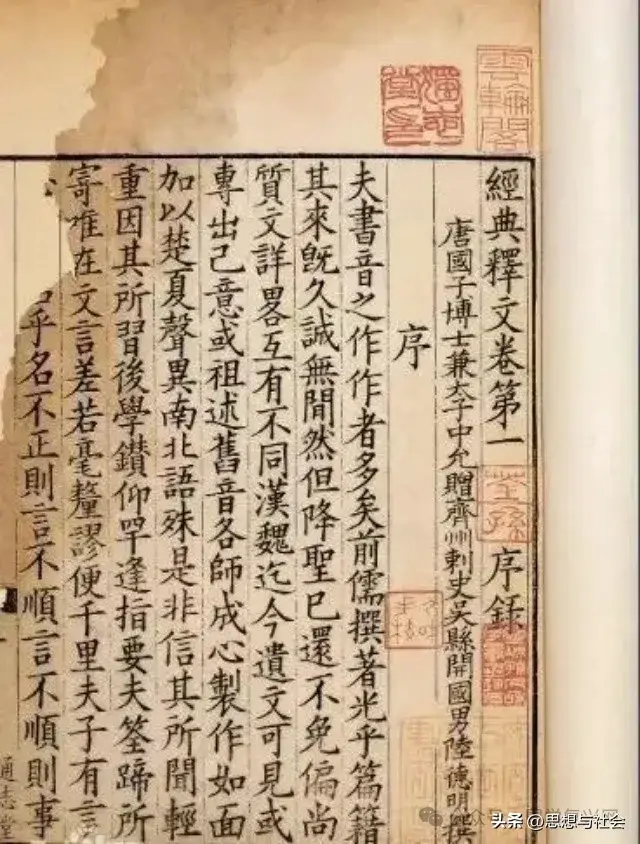 雲輪閣
經典釋文卷第一 序錄
荃孫
唐國子博士兼太子中允贈齊州刺史吳縣開國男陸德明撰
序
夫書音之作作者多矣前儒撰著光乎篇籍
其來旣久誠無閒然但降聖已還不免偏尚
質文詳畧互有不同漢魏迄今遺文可見或
專出己意或祖述舊音各師成心製作如面
加以楚夏聲異南北語殊是非信其所聞輕
重因其所習後學鑽仰罕逢指要夫筌蹄所
寄唯在文言差若毫釐謬便千里夫子有言
乎名不正則言不順言不順則事
通志堂
头条 @思想与社会